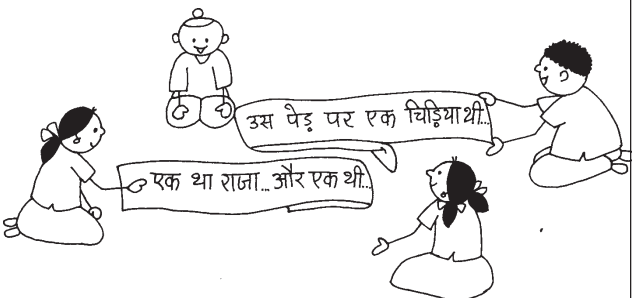 उस पेड़ पर एक चिड़िया थी...
एक था राजा...और एक थी...